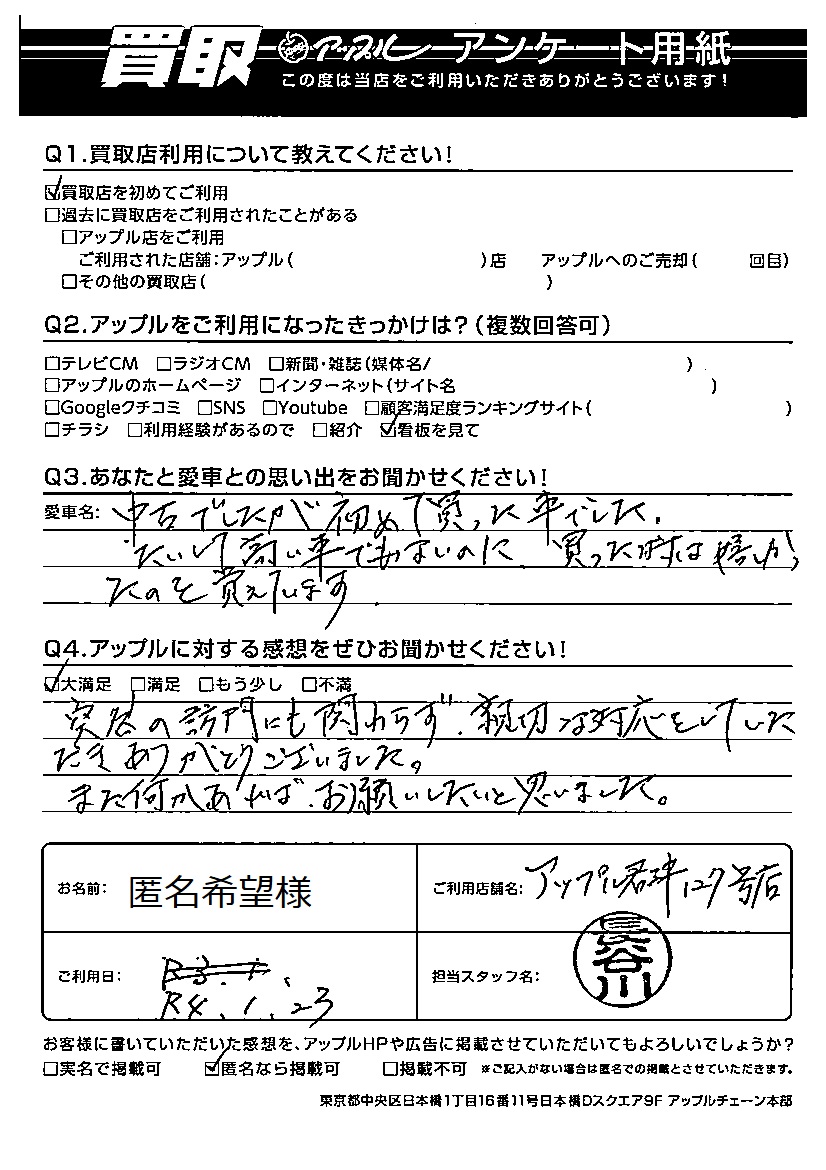 買取 アップル アンケート用紙
この度は当店をご利用いただきありがとうございます!
Q1.買取店利用について教えてください!
☑買取店を初めてご利用
□過去に買取店をご利用されたことがある
□アップル店をご利用
ご利用された店舗:アップル( )店 アップルへのご売却( 回目)
□その他の買取店( )
Q2.アップルをご利用になったきっかけは?(複数回答可)
□テレビCM □ラジオCM □新聞・雑誌(媒体名/ )
□アップルのホームページ □インターネット(サイト名 )
□Googleクチコミ □SNS □Youtube □顧客満足度ランキングサイト( )
□チラシ □利用経験があるので □紹介 ☑看板を見て
Q3.あなたと愛車との思い出をお聞かせください!
愛車名: 中古でしたが初めて買った車でした.
たいして高い車でもないのに、買った時は嬉しか
たのを覚えています
Q4.アップルに対する感想をぜひお聞かせください!
☑大満足 □満足 □もう少し □不満
突然の訪問にも関わらず、親切な対応をしていた
だきありがとうございました。
また何かあれば、お願いしたいと思いました。
お名前: 匿名希望様 ご利用店舗名: アップル群馬127号店
ご利用日: R3.1. R4.1.23 担当スタッフ名: 長谷川
お客様に書いていただいた感想を、アップルHPや広告に掲載させていただいてもよろしいでしょうか?
□実名で掲載可 ☑匿名なら掲載可 □掲載不可 ※ご記入がない場合は匿名での掲載とさせていただきます。
東京都中央区日本橋1丁目16番11号日本橋Dスクエア9F アップルチェーン本部